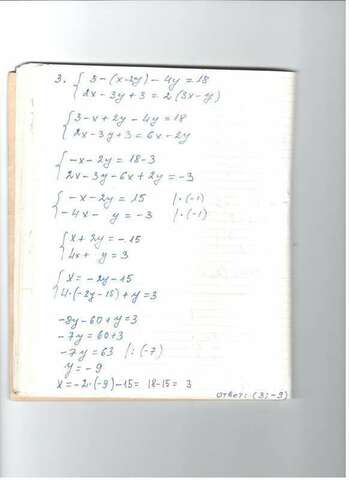 3. { 3-(x-2y)-4y=18
2x-3y+3=2(3x-y)
{ 3-x+2y-4y=18
2x-3y+3=6x-2y
{ -x-2y=18-3
2x-3y-6x+2y=-3
{ -x-2y=15 |·(-1)
-4x- y=-3 |·(-1)
{ x+2y=-15
4x+ y=3
{ x=-2y-15
4·(-2y-15)+y=3
-8y-60+y=3
-7y=60+3
-7y=63 |:(-7)
y=-9
x=-2·(-9)-15= 18-15= 3
ответ: (3;-9)